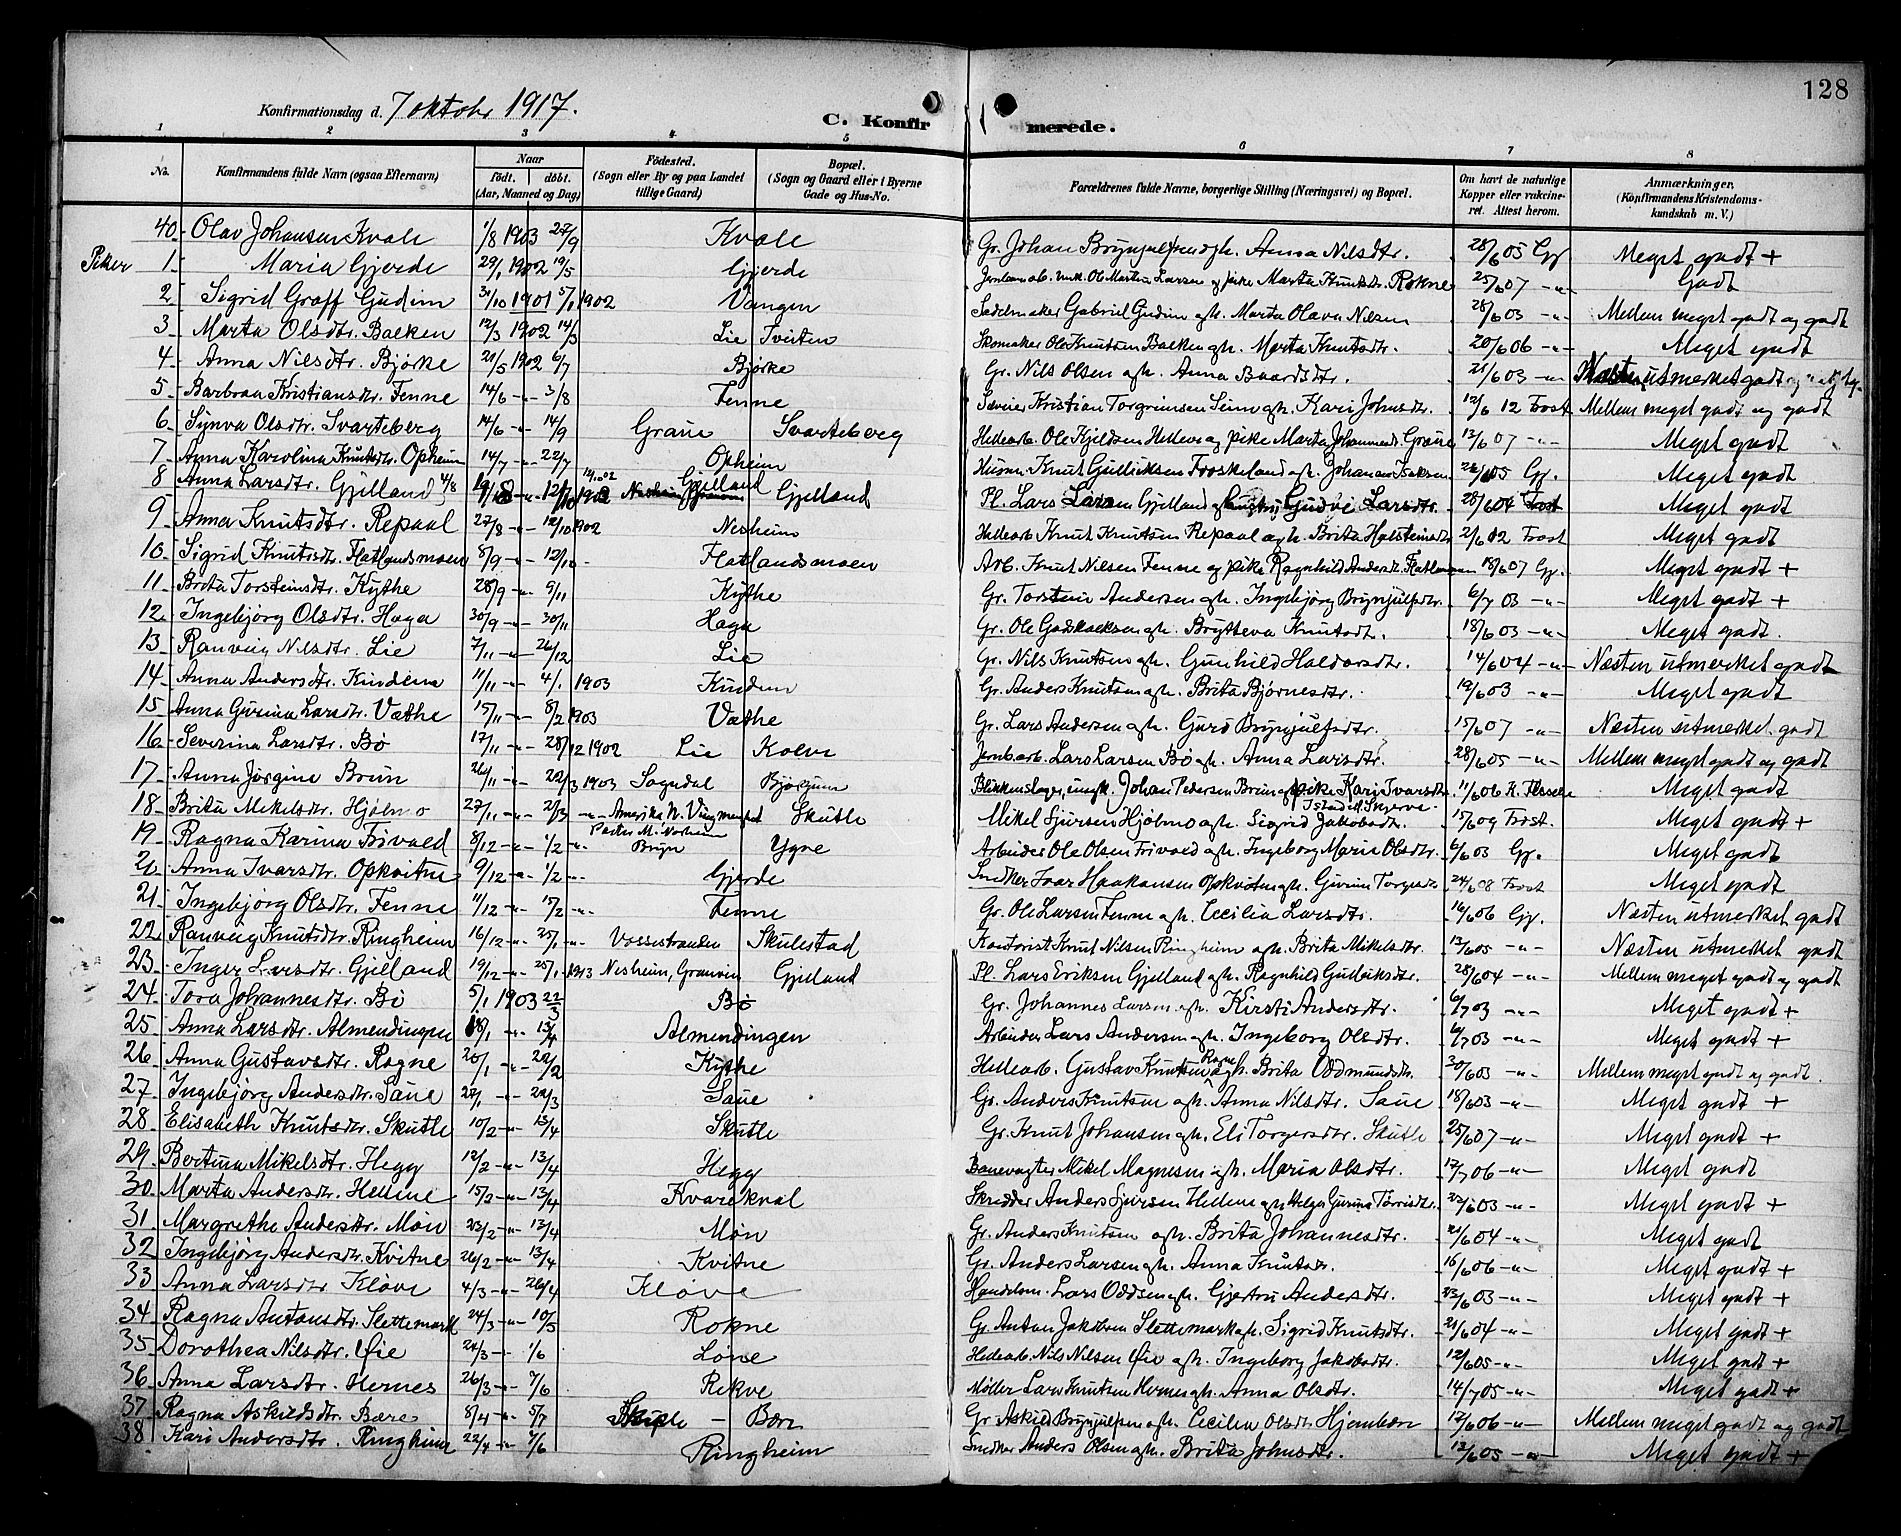 128
Konfirmationsdag d. 7 oktobr 1917.
C. Konfirmerede.
1 2 3 4 5 6 7 8
No. Konfirmandens fulde Navn (ogsaa Efternavn) Naar født. døbt. (Aar, Maaned og Dag) Fødested. (Sogn eller By og paa Landet tillige Gaard) Bopæl. (Sogn og Gaard eller i Byerne Gade og Hus-No. Forældrenes fulde Navne, borgerlige Stilling (Næringsvei) og Bopæl. Om havt de naturlige Kopper eller vakcineret. Attest herom. Anmærkninger. (Konfirmandens Kristendomskundskab m. V.)
40. Olav Johansen Kvale 1/8 1903 27/9 Kvale Gr. Johan Brynjulfsen og h. Anna Nilsdtr. 28/6 05 Gj. Meget godt +
Piker 1. Maria Gjerde 29/1 1902 19/5 Gjerde Ole Martin Larsen og pike Marta Knutsdtr. Rokne 25/6 07 -"- Godt
2. Sigrid Graff Gudim 31/10 1901 5/1 1902 Vangen Sadelmaker Gabriel Gudim og h. Marta Olava Nilsen 28/6 03 -"- Mellem meget godt og godt
3. Marta Olsdtr. Balken 12/3 1902 14/3 Lie Tveiten Skomaker Ole Knutsen Balken og h. Marta Knutsdtr. 20/6 06 -"- Meget godt
4. Anna Nilsdtr. Bjørke 21/5 1902 6/7 Bjørke Gr. Nils Olsen og h. Anna Baardsdtr. 21/6 03 -"- Næsten utmerket godt
5. Barbraa Kristiansdtr. Fenne 14/6 -"- 3/8 Fenne Kristian Torgrimsen og h. Kari Johnsdtr. 12/6 12 Frost Mellem meget godt og godt
6. Synva Olsdtr. Svarteberg 14/6 -"- 14/9 Graue Svarteberg Hellearb. Ole Kjeldsen Helleve og pike Marta Johannesdt. Graue 12/6 07 -"- Meget godt
7. Anna Karolina Knutsdtr. Opheim 14/7 -"- 22/7 Opheim Husm. Knut Gulliksen Froskeland og h. Johanna Isaksen 26/6 05 Gj. Meget godt
8. Anna Larsdtr. Gjelland 4/8 12/10 02 Gjelland Gjelland Pl. Lars Larsen Gjelland Gudvi Larsdtr. 28/6 04 Frost Meget godt
9. Anna Knutsdtr. Repaal 27/8 -"- 12/10 1902 Nesheim Hellearb. Knut Knutsen Repaal og h. Brita Halsteinsdtr 2/6 02 Frost Meget godt
10. Sigrid Knutsdtr. Flatlandsmoen 8/9 -"- 12/10 -"- Flatlandsmoen Arb. Knut Nilsen Fenne og pike Ragnhild Andersdt. 18/6 07 Gj. Meget godt +
11. Brita Torsteinsdtr. Kythe 28/9 -"- 9/11 Kythe Gr. Torstein Andersen og h. Ingebjørg Brynjulfsdtr. 6/7 03 -"- Meget godt +
12. Ingebjørg Olsdtr. Haga 30/9 -"- 30/11 Haga Gr. Ole Godskalksen og h. Brytteva Knutsdt. 18/6 03 -"- Meget godt.
13. Ranveig Nilsdtr. Lie 7/11 -"- 26/12 Lie Gr. Nils Knutsen og h. Gunhild Haldorsdtr. 14/6 04 -"- Næsten utmerket godt
14. Anna Andersdtr. Kindem 11/11 -"- 4/1 1903 Kindem Gr. Anders Knutsen og h. Brita Bjørnesdtr. 19/6 03 -"- Meget godt
15. Anna Gurina Larsdtr. Væthe 15/11 -"- 8/2 1903 Væthe Gr. Lars Andersen og h. Guro Brynjulfsdtr. 15/6 07 -"- Næsten utmerket godt
16. Severina Larsdtr. Bø 17/11 -"- 28/12 1902 Lie Kolve Jernb.arb. Lars Larsen Bø og h. Anna Larsdtr. 28/6 05 -"- Mellem meget godt og godt
17. Anna Jørgine Brun 26/11 -"- 22/3 1903 Sogndal Bjørgum Blikkenslager, ungk. Johan Pedersen Brun og pike Kari Ivarsdtr 11/6 06 Meget godt
18. Brita Mikelsdtr. Hjølmo 27/11 -"- 2/3 -"- Amerika Skutle Mikel Sjursen Hjølmo og h. Sigrid Jakobsdtr. 15/6 09 Frost. Meget godt +
19. Ragna Karina Trivold 8/12 -"- 1/2 -"- Bryn Ygre Arbeider Ole Olsen Trivold og h. Ingeborg Marie Olsdtr. 6/6 03 Gj. Meget godt
20. Anna Ivarsdtr. Opkvitne 9/12 -"- 1/2 -"- Gjerde Snedker Ivar Haakonsen Opkvitne og h. Gurina 24/6 08 Frost Meget godt
21. Ingebjørg Olsdtr. Fenne 11/12 -"- 15/2 -"- Fenne Gr. Ole Larsen Fenne og h. Cecilia Larsdtr. 16/6 06 Gj. Næsten utmerket godt
22. Ranveig Knutsdtr. Ringheim 16/12 -"- 25/1 -"- Vossestranden Skulestad Kontorist Knut Nilsen Ringheim og h. Brita Mikelsdtr. 13/6 05 -"- Næsten utmerket godt
23. Inger Larsdtr. Gjelland 19/12 -"- 25/1 1903 Nesheim, Granvin Gjelland Pl. Lars Eriksen Gjelland og h. Ragnhild Gulleiksdtr. 28/6 04 -"- Mellem meget godt og godt
24. Tora Johannesdtr. Bø 5/1 1903 22/3 Bø Gr. Johannes Larsen og h. Kirsti Andersdtr. 6/7 03 -"- Meget godt +
25. Anna Larsdtr. Almendingen 18/1 -"- 13/4 Almendingen Arbeider Lars Andersen og h. Ingeborg Olsdtr. 6/7 03 -"- Meget godt +
26. Anna Gustavsdtr. Rogne 20/1 -"- 22/2 Kythe Hellearb. Gustav Knutsen Rogne og h. Brita Oddmundsdtr. 30/6 03 -"- Mellem meget godt og godt.
27. Ingebjørg Andersdtr. Saue 27/1 -"- 22/3 Saue Gr. Anders Knutsen og h. Anna Nilsdtr. Saue 18/6 03 -"- Meget godt +
28. Elisabeth Knutsdtr. Skutle 10/2 -"- 13/4 Skutle Gr. Knut Johansen og h. Eli Torgersdtr. Skutle 25/6 07 -"- Meget godt +
29. Bertina Mikelsdtr. Hegg 12/2 -"- 13/4 Hegg Banevagter Mikel Magnesen og h. Maria Olsdtr. 17/7 06 -"- Meget godt
30. Marta Andersdtr. Hellene 15/2 -"- 13/4 Kvarekval Skrædder Anders Sjursen Hellene og h. Helga Gurina 22/6 03 -"- Meget godt +
31. Margrethe Andersdtr. Møn 23/2 -"- 13/4 Møn Gr. Anders Knutsen og h. Brita Johannesdtr. 21/6 04 -"- Meget godt
32. Ingebjørg Andersdtr. Kvitne 26/2 -"- 13/4 Kvitne Gr. Anders Larsen og h. Anna Knutsdtr. 16/6 06 -"- Meget godt +
33. Anna Larsdtr Kløve 4/3 -"- 26/4 Kløve Handelsm. Lars Oddsen og h. Gjertru Andersdtr. 23/6 03 -"- Meget godt +
34. Ragna Antonsdtr. Slettemark 24/3 -"- 10/5 Rokne Gr. Anton Jakobsen Slettemark og h. Sigrid Knutsdtr. 21/6 04 -"- Meget godt +
35. Dorothea Nilsdtr. Øie 24/3 -"- 1/6 Løne Hellearb. Nils Nilsen Øie og h. Ingeborg Jakobsdtr. 12/6 05 -"- Meget godt +
36. Anna Larsdtr. Hernes 26/3 -"- 7/6 Rekve Møller Lars Knutsen Hernes og h. Anna Olsdtr. 14/7 05 -"- Meget godt +
37. Ragna Askildsdtr. Bære 8/4 -"- 5/7 – Bære Gr. Askild Brynjulfsen og h. Cecilia Olsdt. Hjembære 17/6 06 -"- Mellem meget godt og godt
38. Kari Andersdtr. Ringheim 22/4 -"- 7/6 Ringheim Snedker Anders Olsen og h. Brita Johnsdtr. 13/6 05 -"- Meget godt +